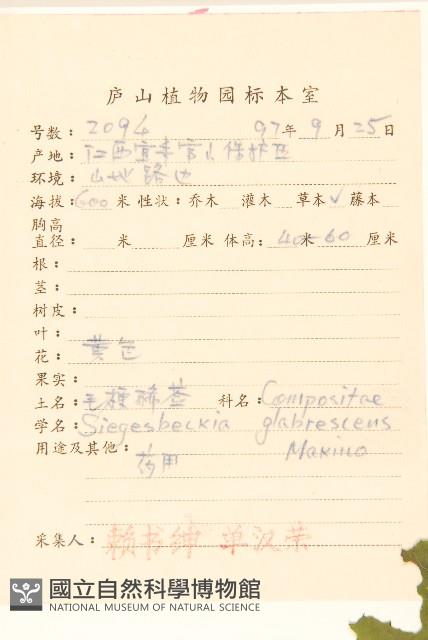 庐山植物园标本室
号数: 2094 97年9月25日
产地: 江西宜丰官山保护区
环境: 山地路边
海拔: 600米 性状: 乔木 灌木 草本✓ 藤本
胸高
直径: 米 厘米 体高: 40米60 厘米
根:
茎:
树皮:
叶:
花: 黄色
果实:
土名: 毛梗豨莶 科名: Compositae
学名: Siegesbeckia glabrescens
用途及其他: Makino
药用
采集人: 赖书绅 单汉荣
國立自然科學博物館
NATIONAL MUSEUM OF NATURAL SCIENCE